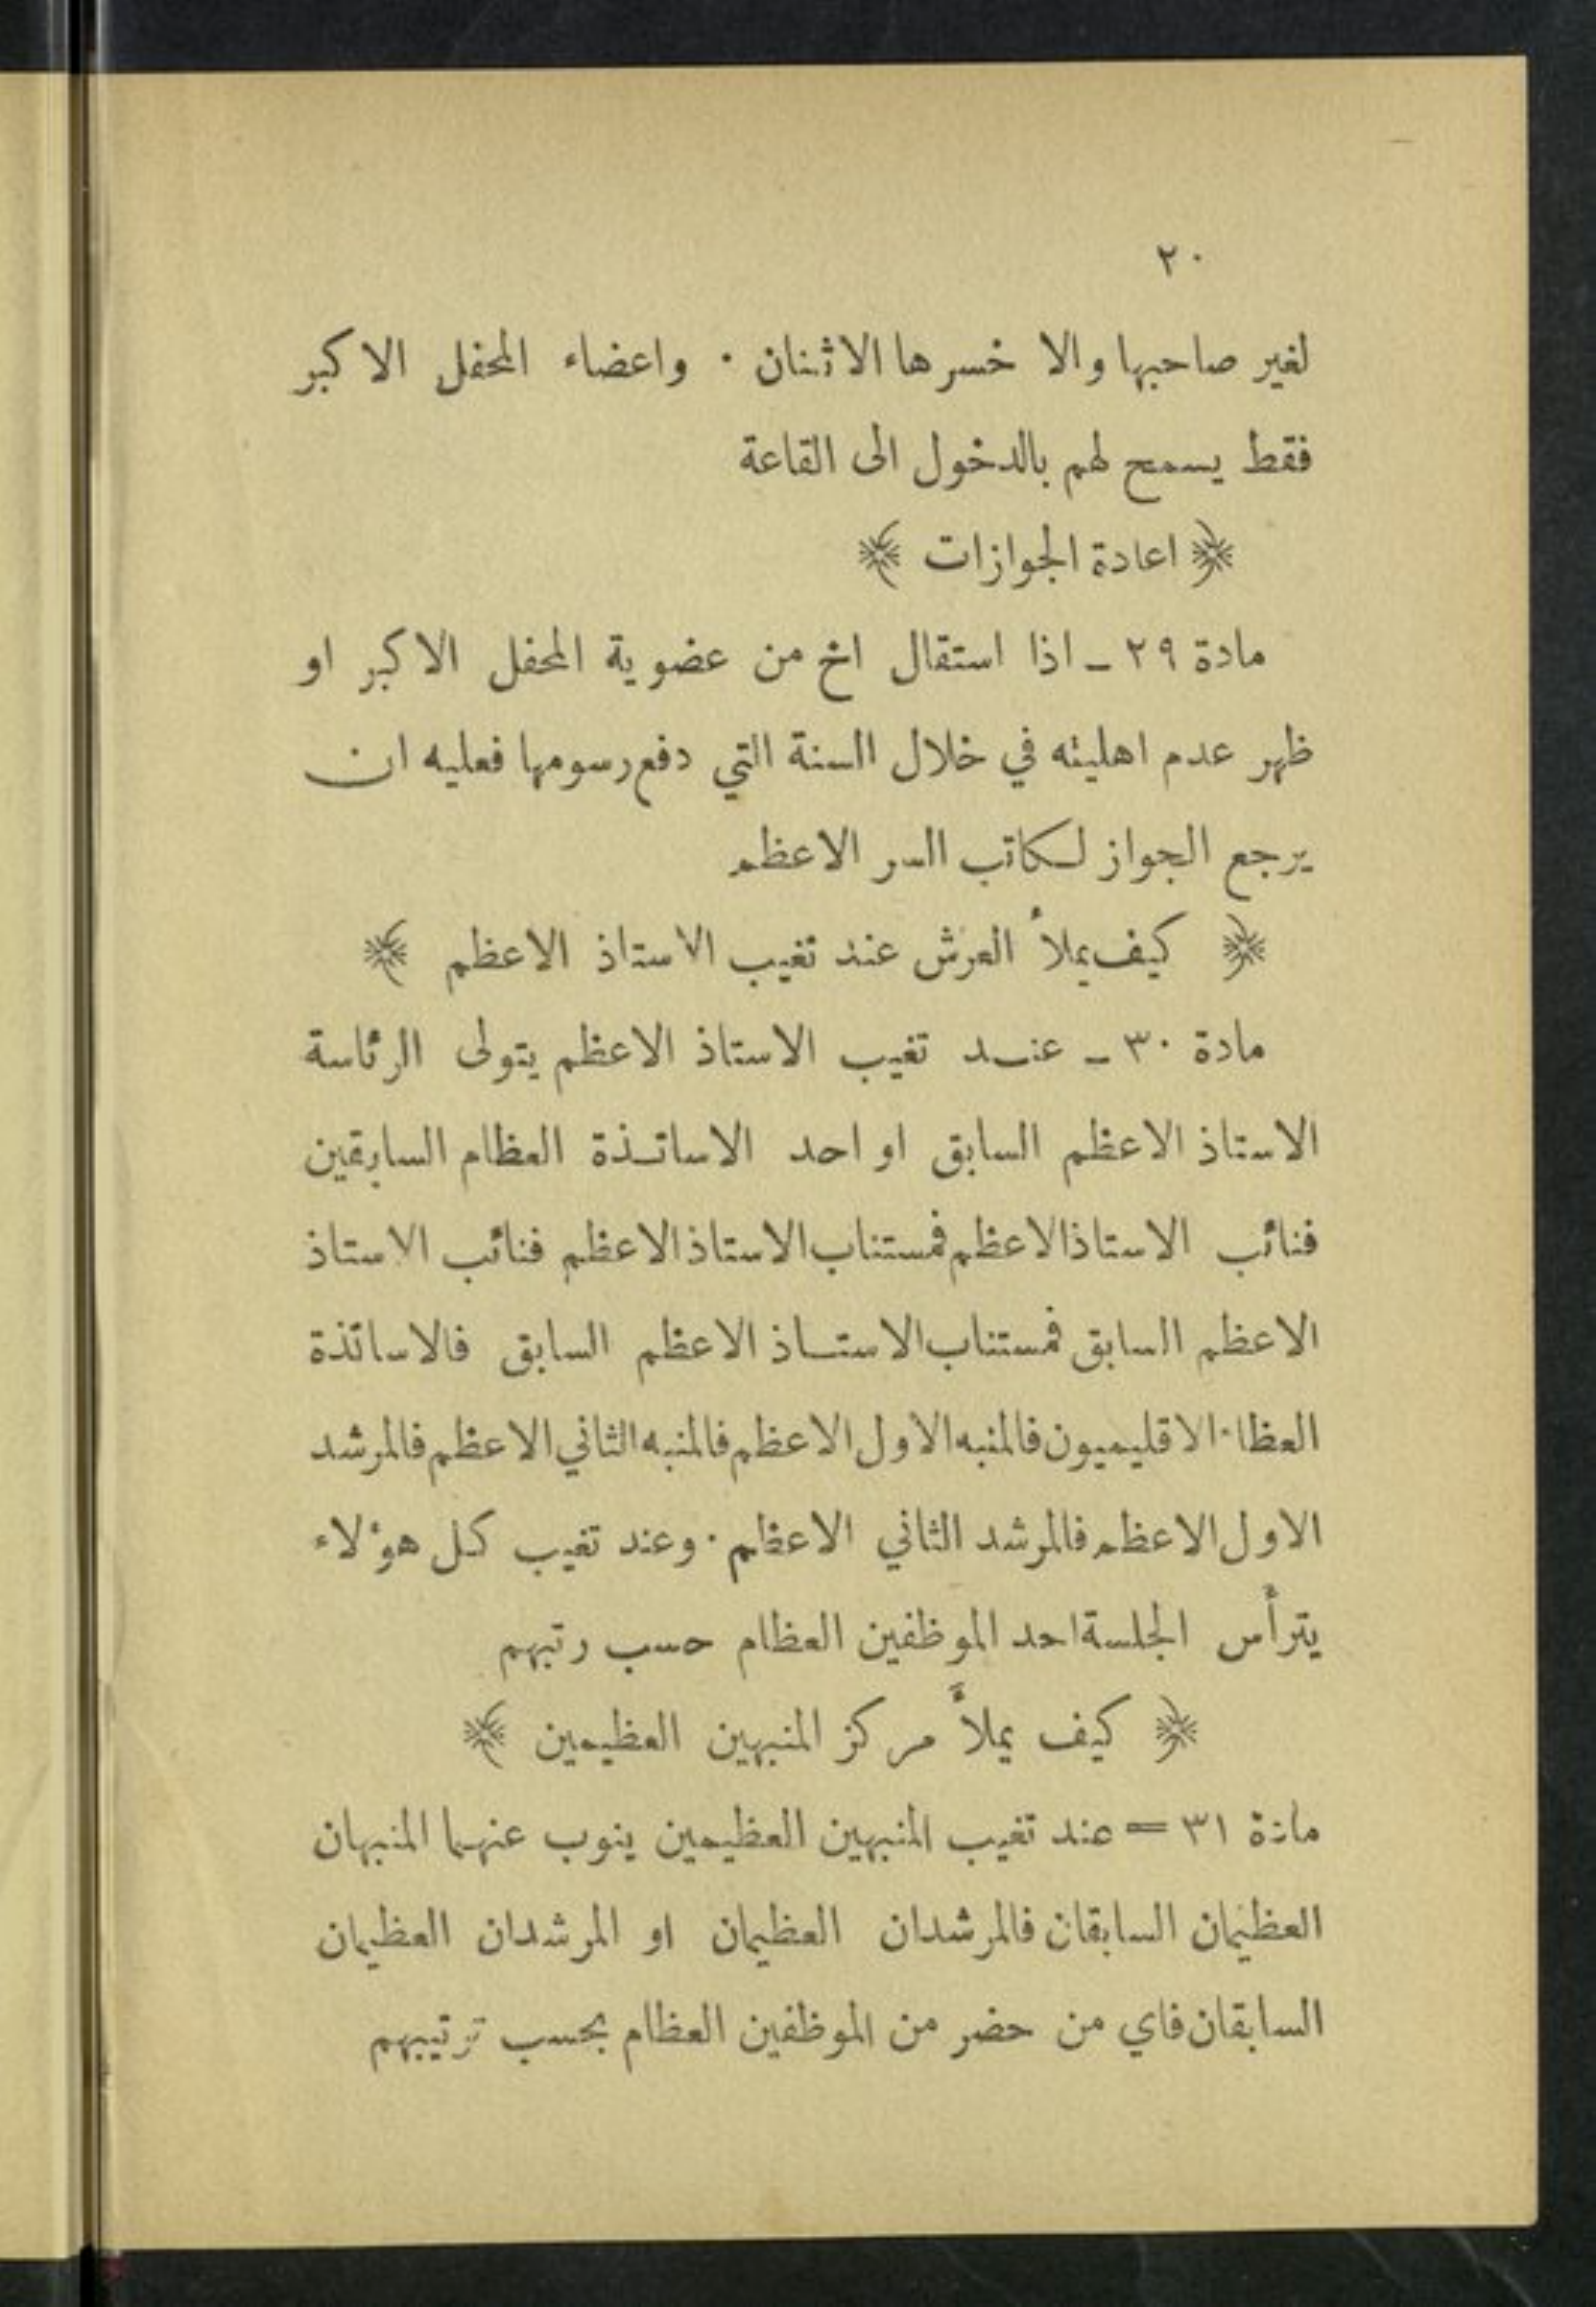 ٢٠
لغير صاحبها والا خسرها الاثنان · واعضاء المحفل الاكبر
فقط يسمح لهم بالدخول الى القاعة
﴿ اعادة الجوازات ﴾
مادة ٢٩ ـ اذا استقال اخ من عضوية المحفل الاكبر او
ظهر عدم اهليته في خلال السنة التي دفع رسومها فعليه ان
يرجع الجواز لكاتب السر الاعظم
﴿ كيف يملأ العرش عند تغيب الاستاذ الاعظم ﴾
مادة ٣٠ ـ عنـد تغيب الاستاذ الاعظم يتولى الرئاسة
الاستاذ الاعظم السابق او احد الاساتـذة العظام السابقين
فنائب الاستاذ الاعظم فمستناب الاستاذ الاعظم فنائب الاستاذ
الاعظم السابق فمستناب الاستـاذ الاعظم السابق فالاساتذة
العظا· الاقليميون فالمنبه الاول الاعظم فالمنبه الثاني الاعظم فالمرشد
الاول الاعظم فالمرشد الثاني الاعظم · وعند تغيب كل هؤلاء
يترأس الجلسة احد الموظفين العظام حسب رتبهم
﴿ كيف يملأ مركز المنبهين العظيمين ﴾
مادة ٣١ = عند تغيب المنبهين العظيمين ينوب عنهما المنبهان
العظيمان السابقان فالمرشدان العظيمان او المرشدان العظيمان
السابقان فاي من حضر من الموظفين العظام بحسب ترتيبهم